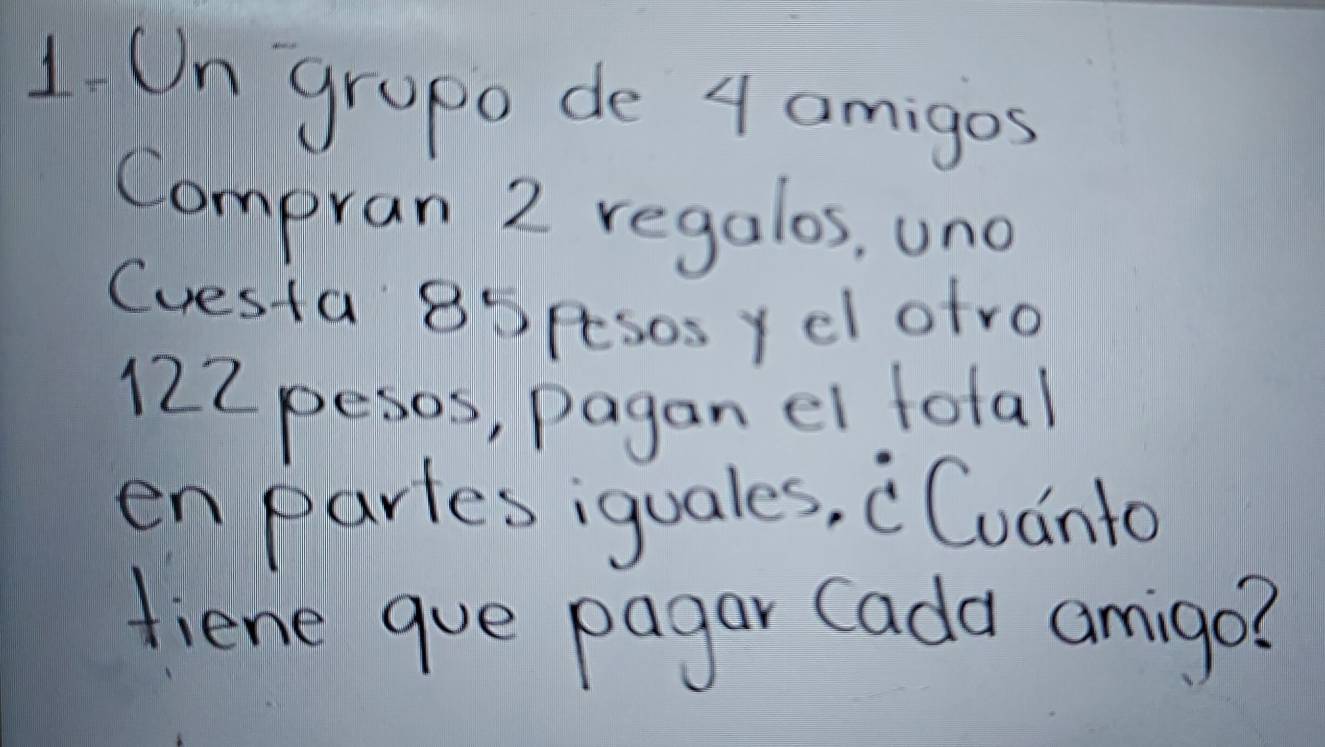 1- Un grupo de 4 amigos
Compran 2 regalos, uno
Cuesta 85 pesos y el otro
122 pesos, pagan el total
en partes iguales. ¿Cuánto
tiene que pagar Cada amigo?